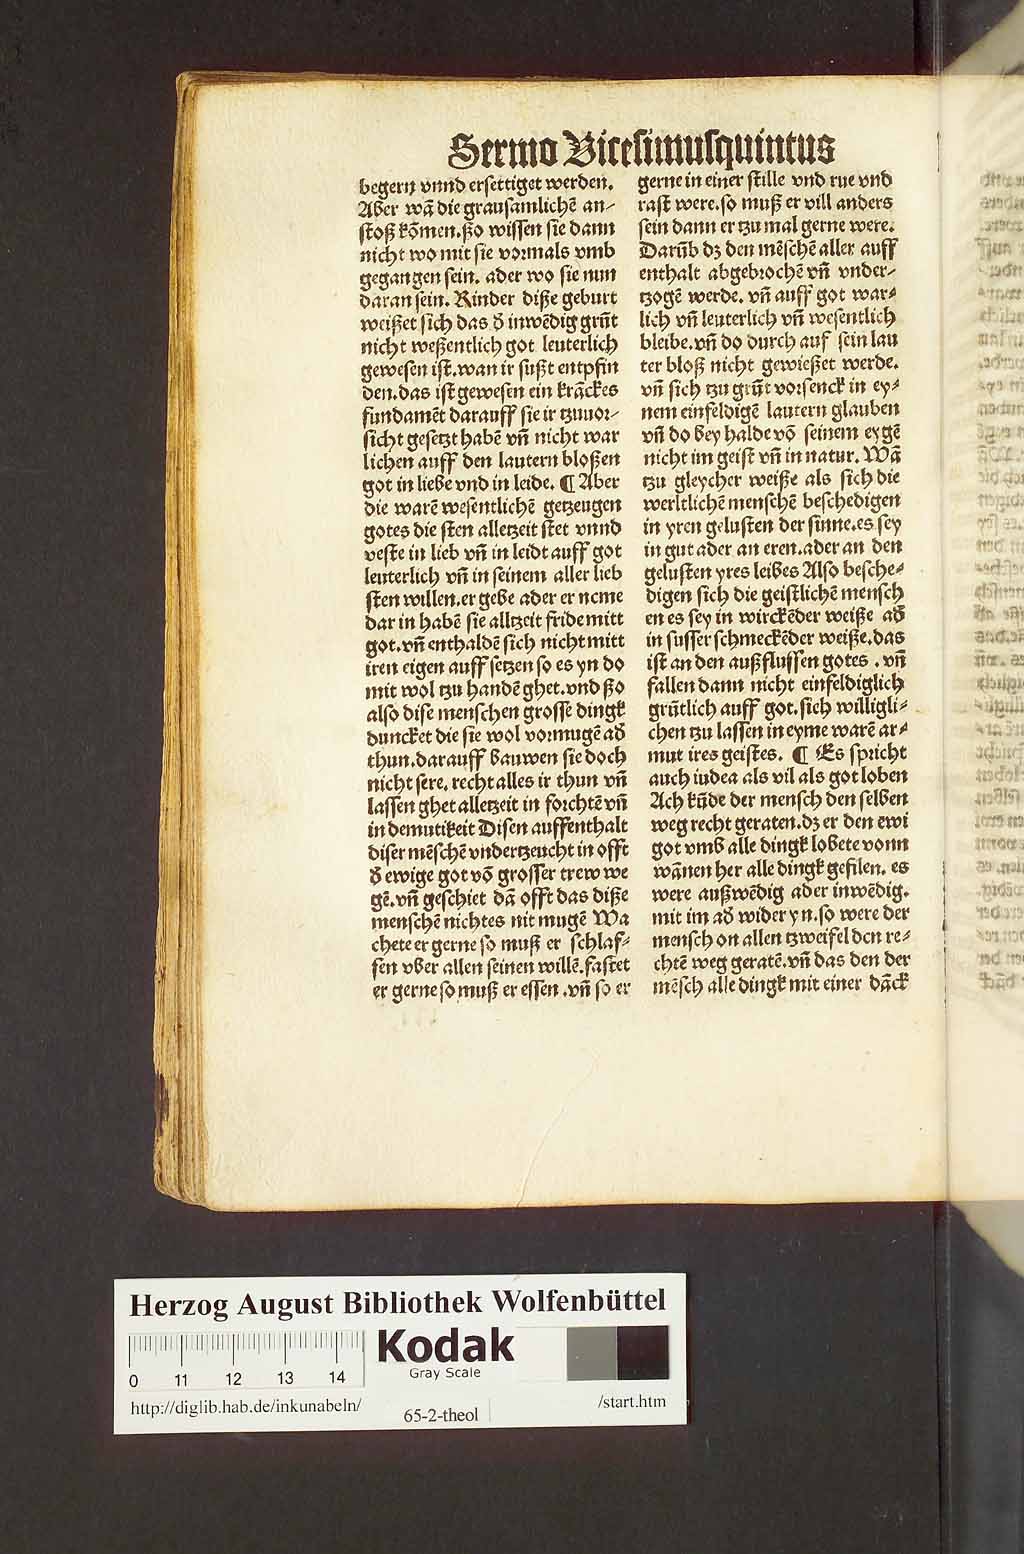 Sermo Vicesimusquintus
begern vnnd ersettiget werden.
Aber wā die grausamlichē an-
stoß kōmen. ßo wissen sie dann
nicht wo mit sie vormals vmb
gegangen sein. ader wo sie nun
daran sein. Kinder diße geburt
weißet sich das d̄ inwēdig grūt
nicht weßentlich got leuterlich
gewesen ist. wan ir sußt entpfin
den. das ist gewesen ein krāckes
fundamēt darauff sie ir tzuuor-
sicht gesetzt habē vn̄ nicht war
lichen auff den lautern bloßen
got in liebe vnd in leide. ¶ Aber
die warē wesentlichē getzeugen
gotes die sten alletzeit stet vnnd
veste in lieb vn̄ in leidt auff got
leuterlich vn̄ in seinem aller lieb
sten willen. er gebe ader er neme
dar in habē sie alltzeit fride mitt
got. vn̄ enthaldē sich nicht mitt
iren eigen auff setzen so es yn do
mit wol tzu handē ghet. vnd ßo
also dise menschen grosse dingk
duncket die sie wol vormugē ad̄
thun. darauff bauwen sie doch
nicht sere. recht alles ir thun vn̄
lassen ghet alletzeit in forchtē vn̄
in demutikeit Disen auffenthalt
diser mēschē vndertzeucht in offt
d̄ ewige got vō grosser trew we
gē. vn̄ geschiet dā offt das diße
menschē nichtes nit mugē Wa
chete er gerne so muß er schlaf-
fen vber allen seinen willē. fastet
er gerne so muß er essen. vn̄ so er
gerne in einer stille vnd rue vnd
rast were. so muß er vill anders
sein dann er tzu mal gerne were.
Darūb dz den mēschē aller auff
enthalt abgebrochē vn̄ vnder-
tzogē werde. vn̄ auff got war-
lich vn̄ leuterlich vn̄ wesentlich
bleibe. vn̄ do durch auf sein lau
ter bloß nicht gewießet werde.
vn̄ sich tzu grūt vorsenck in ey-
nem einfeldigē lautern glauben
vn̄ do bey halde vō seinem eygē
nicht im geist vn̄ in natur. Wā
tzu gleycher weiße als sich die
werltlichē menschē beschedigen
in yren gelusten der sinne. es sey
in gut ader an eren. ader an den
gelusten yres leibes Also besche-
digen sich die geistlichē mensch
en es sey in wirckēder weiße ad̄
in susser schmeckēder weiße. das
ist an den außflussen gotes. vn̄
fallen dann nicht einfeldiglich
grūtlich auff got. sich willigli-
chen tzu lassen in eyme warē ar-
mut ires geistes. ¶ Es spricht
auch iudea als vil als got loben
Ach kūde der mensch den selben
weg recht geraten. dz er den ewi
got vmb alle dingk lobete vonn
wānen her alle dingk gefilen. es
were außwēdig ader inwēdig.
mit im ad̄ wider yn. so were der
mensch on allen tzweifel den re-
chtē weg geratē. vn̄ das den der
mēsch alle dingk mit einer dāck
Herzog August Bibliothek Wolfenbüttel
Kodak
Gray Scale
0 11 12 13 14
http://diglib.hab.de/inkunabeln/
65-2-theol
/start.htm